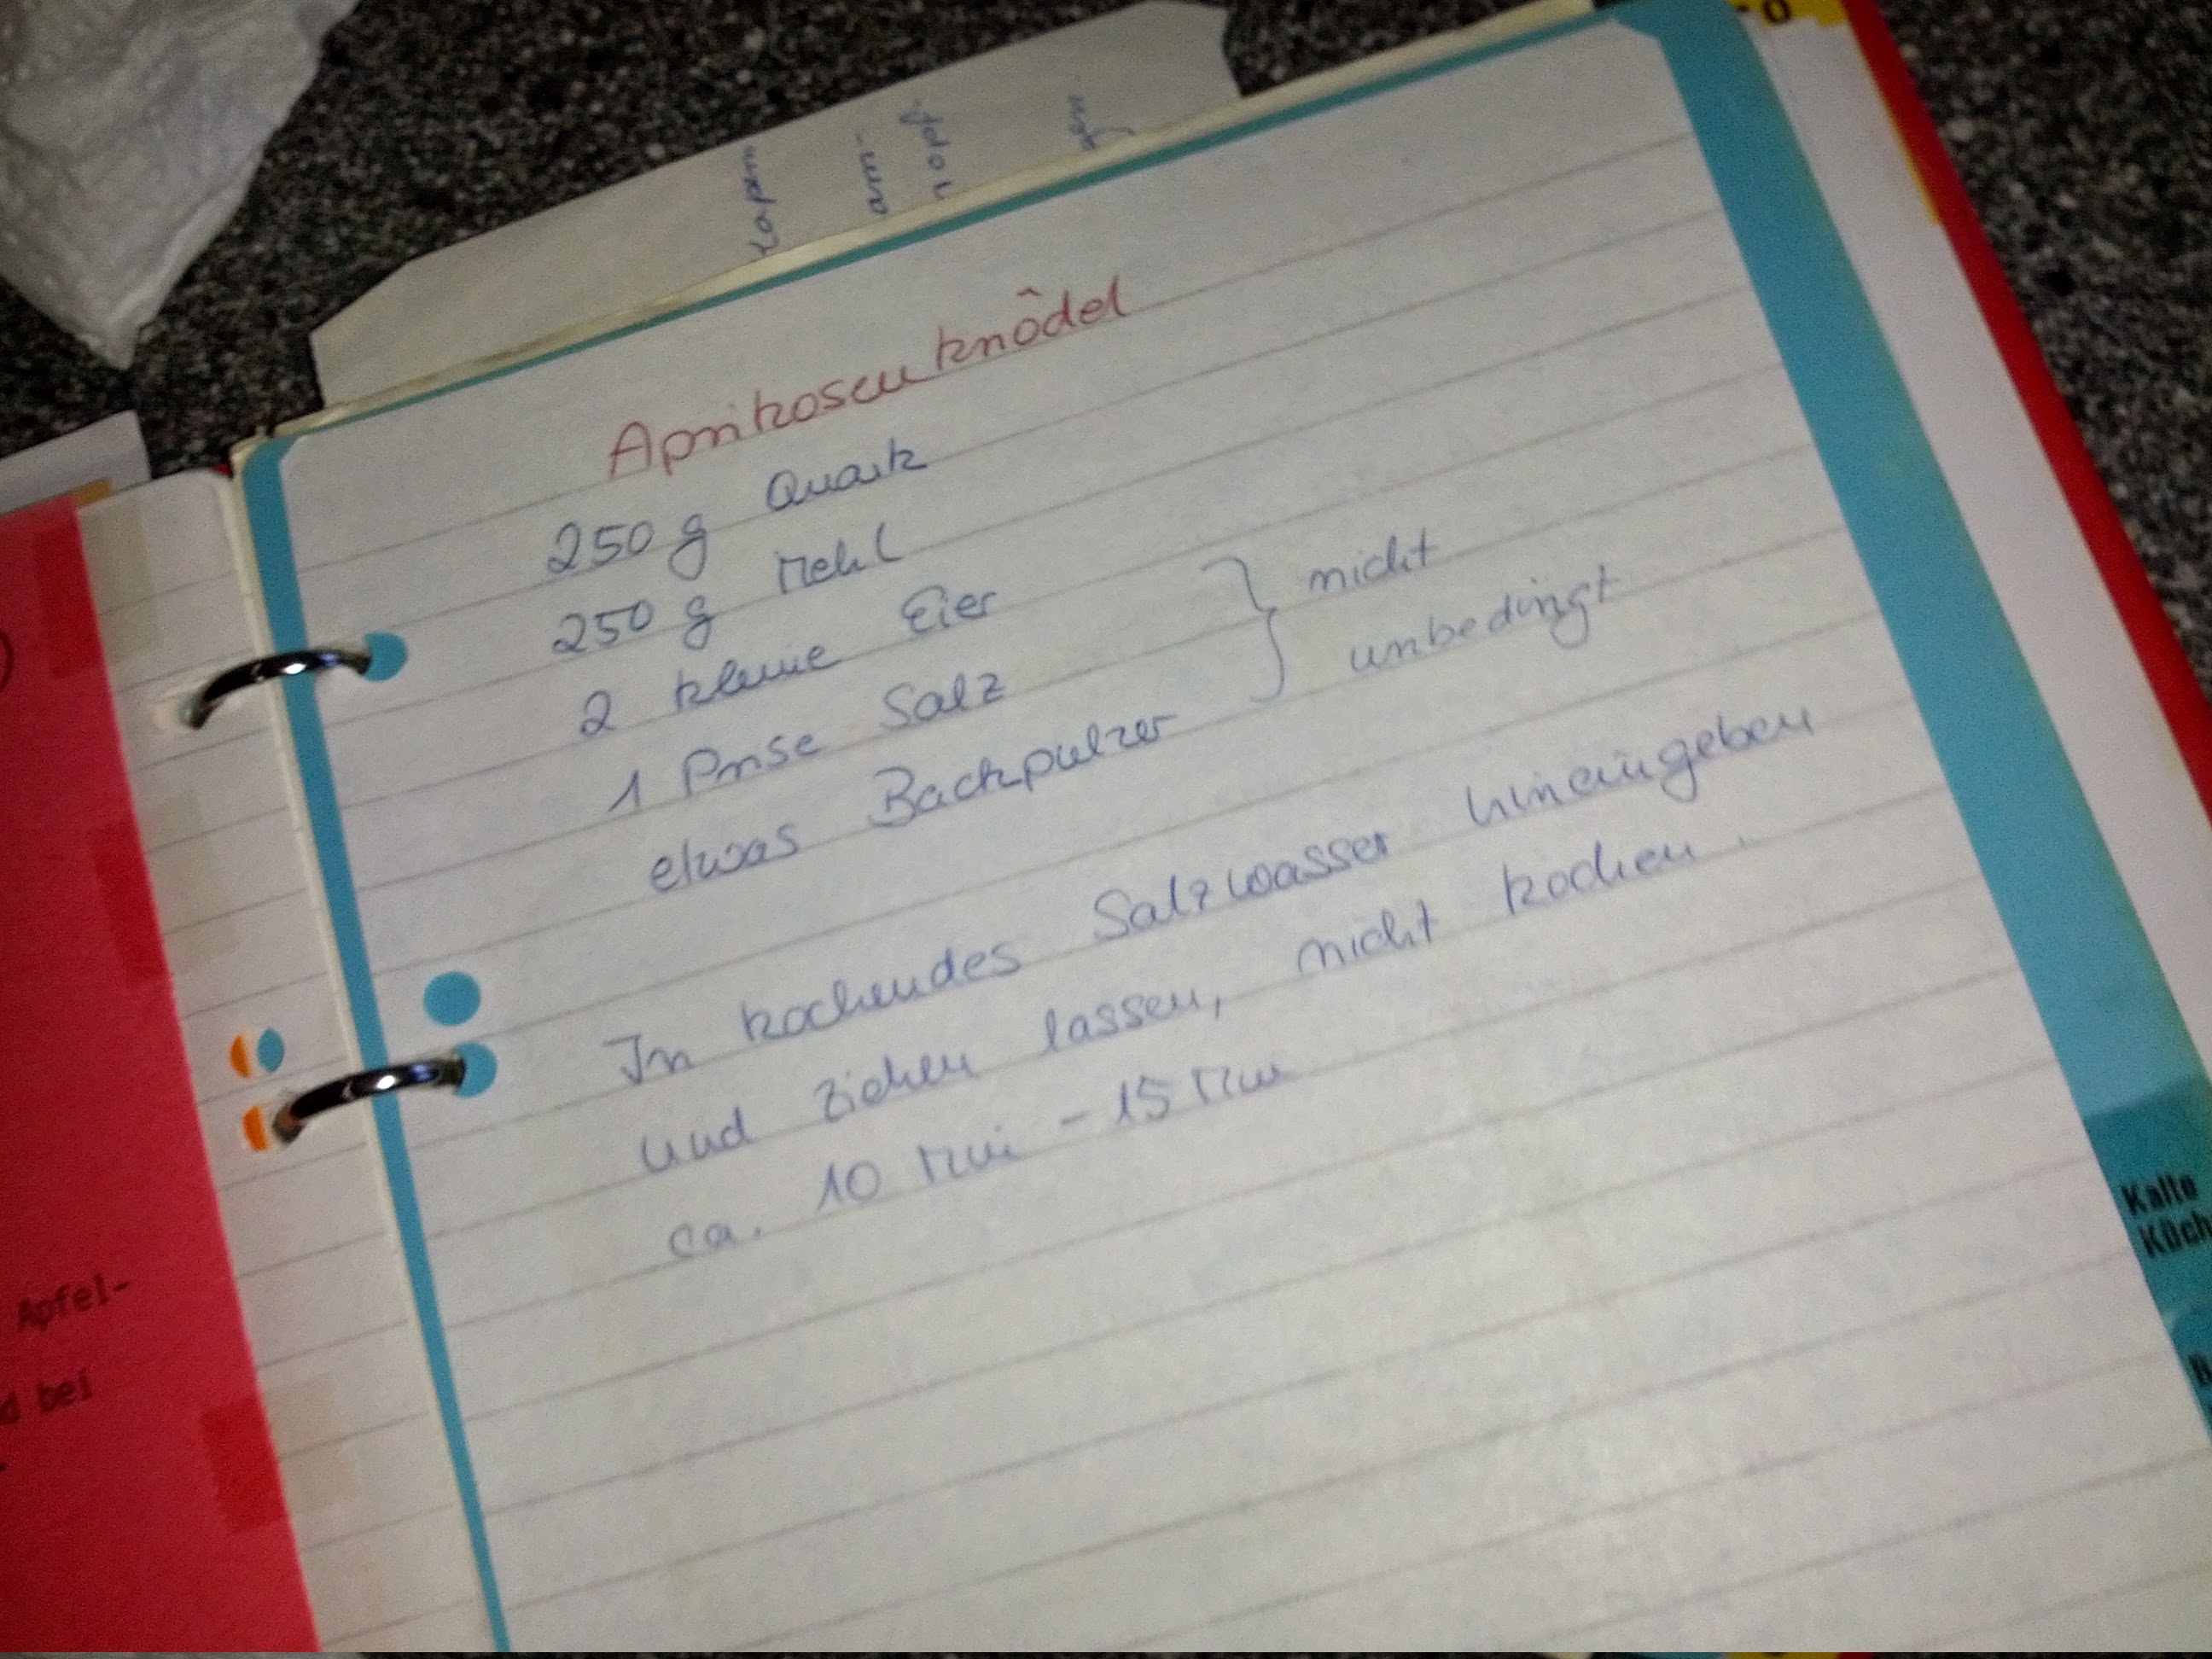 Aprikosenknôdel
250 g Quark
250 g Mehl
2 kleine Eier
1 Prise Salz
etwas Backpulzer
} nicht
unbedingt
In kochendes Salzwasser hineingeben
und ziehen lassen, nicht kochen.
ca. 10 Min - 15 Min
Apfel-
bei
Kalte
Küch